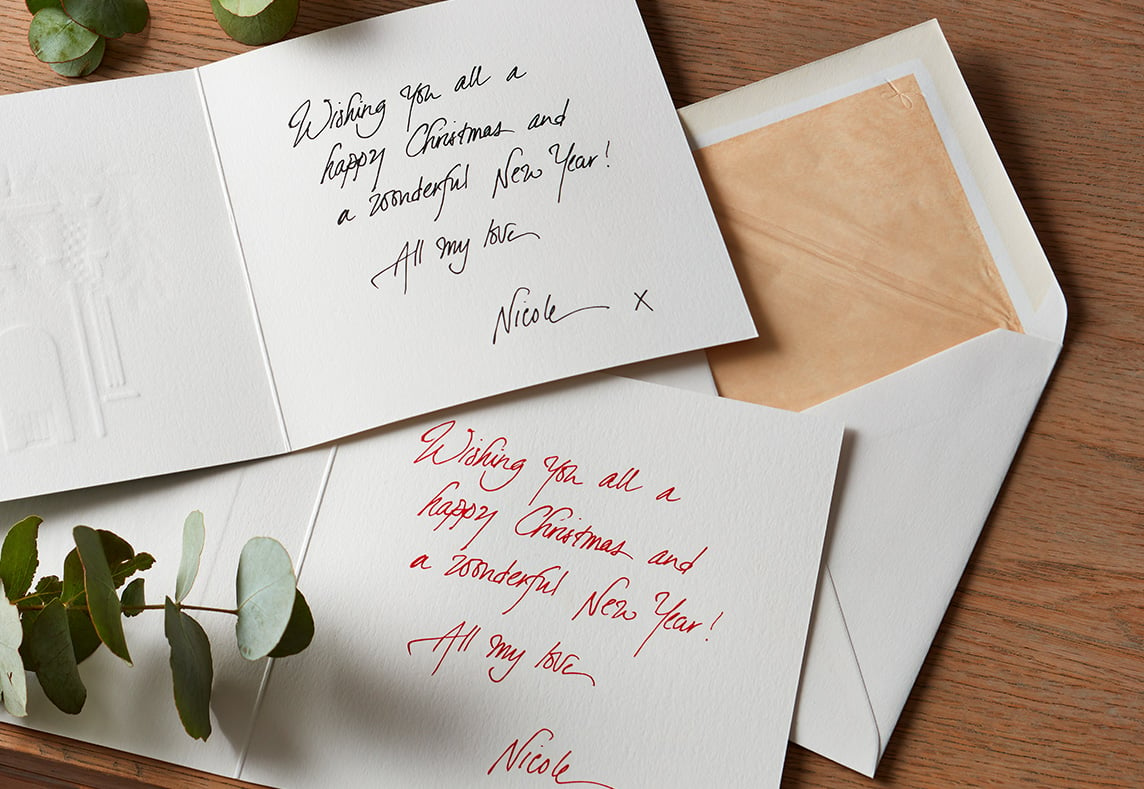 Wishing you all a
happy Christmas and
a wonderful New Year!
All my love
Nicole x
Wishing you all a
happy Christmas and
a wonderful New Year!
All my love
Nicole